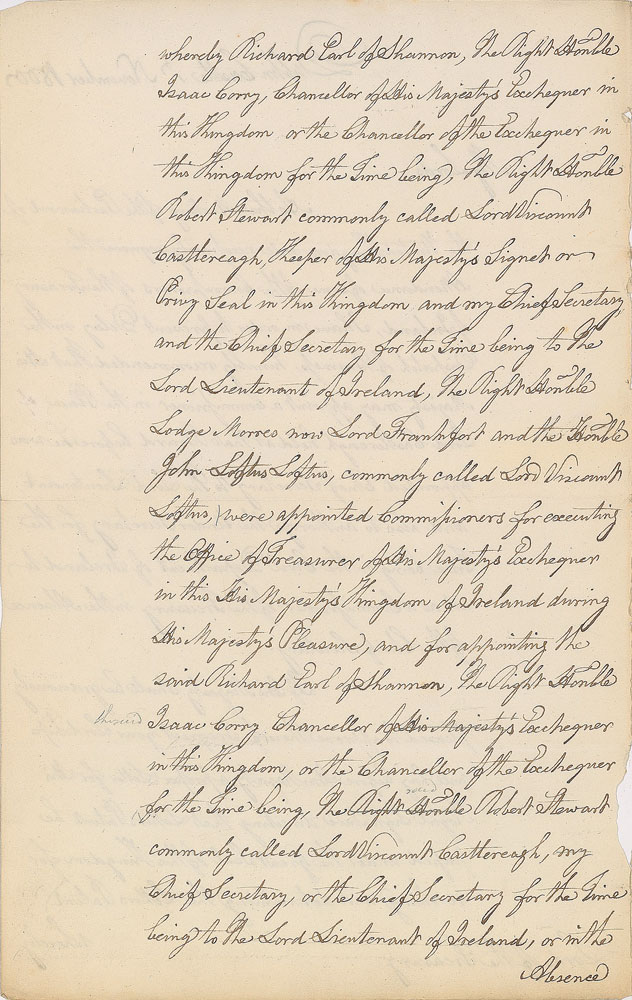 whereby Richard Earl of Shannon, The Right Honble
Isaac Corry, Chancellor of His Majesty's Exchequer in
this Kingdom or the Chancellor of the Exchequer in
this Kingdom for the Time being, The Right Honble
Robert Stewart commonly called Lord Viscount
Castlereagh, Keeper of His Majesty's Signet or
Privy Seal in this Kingdom and my Chief Secretary
and the Chief Secretary for the Time being to The
Lord Lieutenant of Ireland, The Right Honble
Lodge Morres now Lord Frankfort and the Honble
John Loftus Loftus, commonly called Lord Viscount
Loftus, were appointed Commissioners for executing
the Office of Treasurer of His Majesty's Exchequer
in this His Majesty's Kingdom of Ireland during
His Majesty's Pleasure, and for appointing the
said Richard Earl of Shannon, The Right Honble
the said
Isaac Corry Chancellor of His Majesty's Exchequer
in this Kingdom, or the Chancellor of the Exchequer
for the Time being, The Right Honble Robert Stewart
commonly called Lord Viscount Castlereagh, my
Chief Secretary, or the Chief Secretary for the Time
being to The Lord Lieutenant of Ireland, or in the
Absence